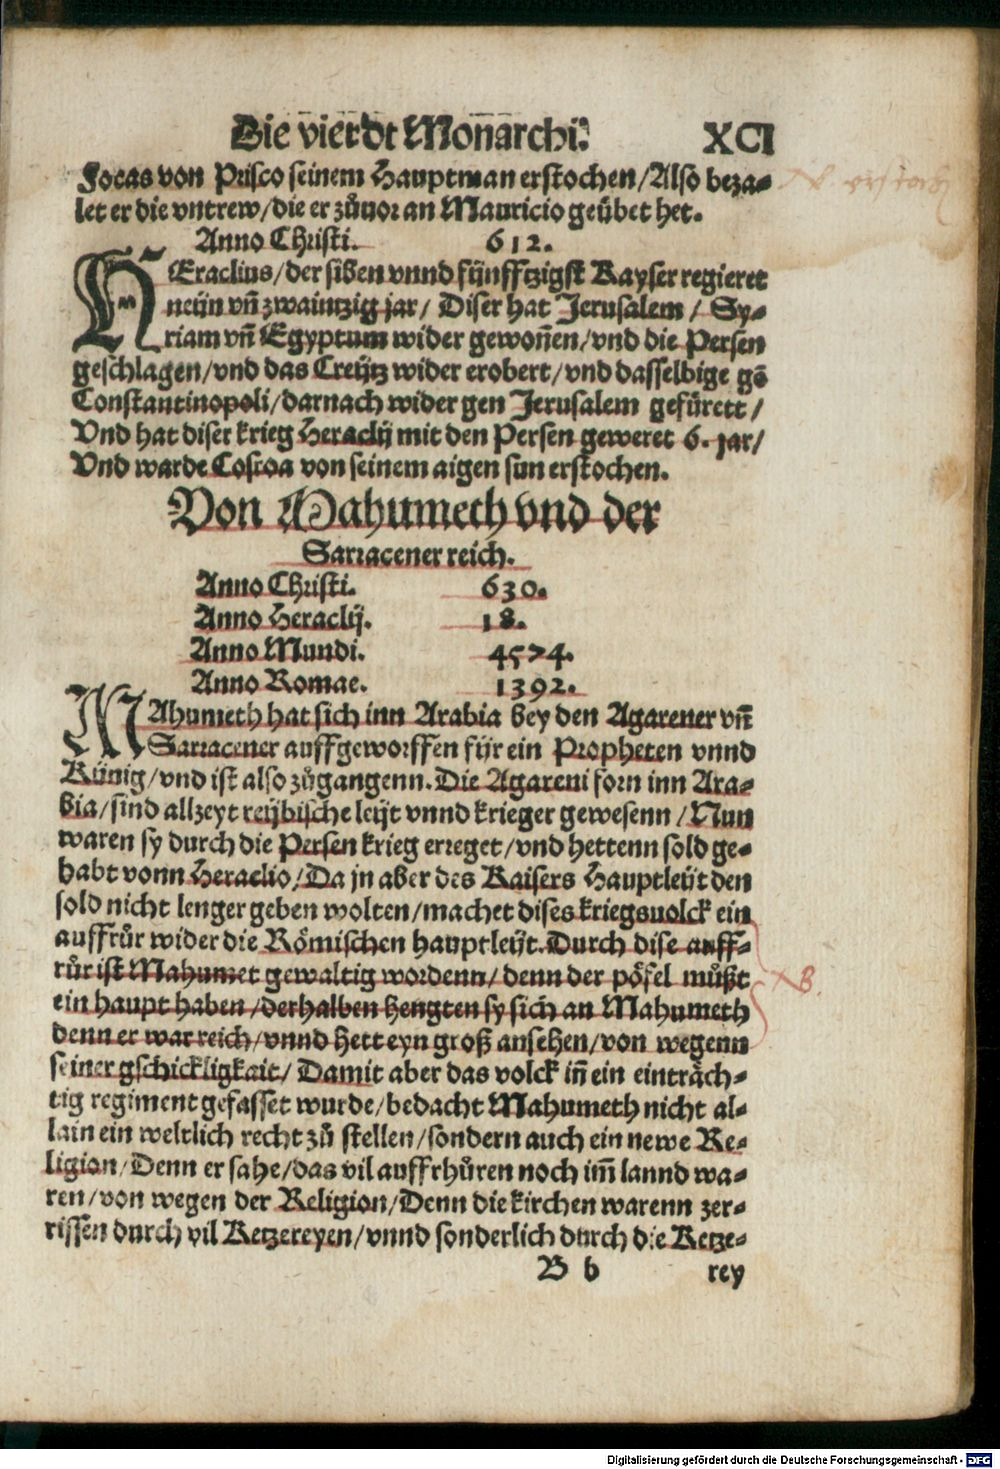 Die vierdt Monarchi. XCI
Focas von Prisco seinem Hauptman erstochen/Also beza-
let er die vntrew/die er zůuor an Mauricio geübet het.
Anno Christi. 612.
HEraclius/der siben vnnd fünfftzigst Kayser regieret
neün vn̄ zwaintzig jar/ Diser hat Jerusalem/ Sy-
riam vn̄ Egyptum wider gewon̄en/vnd die Persen
geschlagen/vnd das Creütz wider erobert/vnd dasselbige gē
Constantinopoli/darnach wider gen Jerusalem gefürett/
Vnd hat diser krieg Heraclij mit den Persen geweret 6. jar/
Vnd warde Cosroa von seinem aigen sun erstochen.
Von Mahumeth vnd der
Sarracener reich.
Anno Christi. 630.
Anno Heraclij. 18.
Anno Mundi. 4574.
Anno Romae. 1392.
MAhumeth hat sich inn Arabia bey den Agarener vn̄
Sarracener auffgeworffen für ein Propheten vnnd
Künig/vnd ist also zůgangenn. Die Agareni forn inn Ara-
bia/sind allzeyt reübische leüt vnnd krieger gewesenn/Nun
waren sy durch die Persen krieg erreget/vnd hettenn sold ge-
habt vonn Heraclio/Da jn aber des Kaisers Hauptleüt den
sold nicht lenger geben wolten/machet dises kriegsuolck ein
auffrůr wider die Römischen hauptleüt. Durch dise auff-
růr ist Mahumet gewaltig wordenn/denn der pöfel můßt
ein haupt haben/derhalben hengten sy sich an Mahumeth
denn er war reich/vnnd hett eyn groß ansehen/von wegenn
seiner gschickligkait/ Damit aber das volck in̄ ein einträch-
tig regiment gefasset wurde/bedacht Mahumeth nicht al-
lain ein weltlich recht zů stellen/sondern auch ein newe Re-
ligion/Denn er sahe/das vil auffrhůren noch im̄ lannd wa-
ren/von wegen der Religion/Denn die kirchen warenn zer-
rissen durch vil Ketzereyen/vnnd sonderlich durch die Ketze-
B b rey
NB.
Digitalisierung gefördert durch die Deutsche Forschungsgemeinschaft - DFG